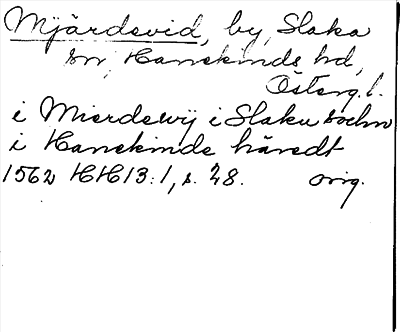 Mjärdevid, by, Slaka
sn, Hanekinds hd,
Österg. l.
i Mierdewij i Slaka sochn
i Hanekinde häredt
1562 HH 13:1, s. 28. orig.